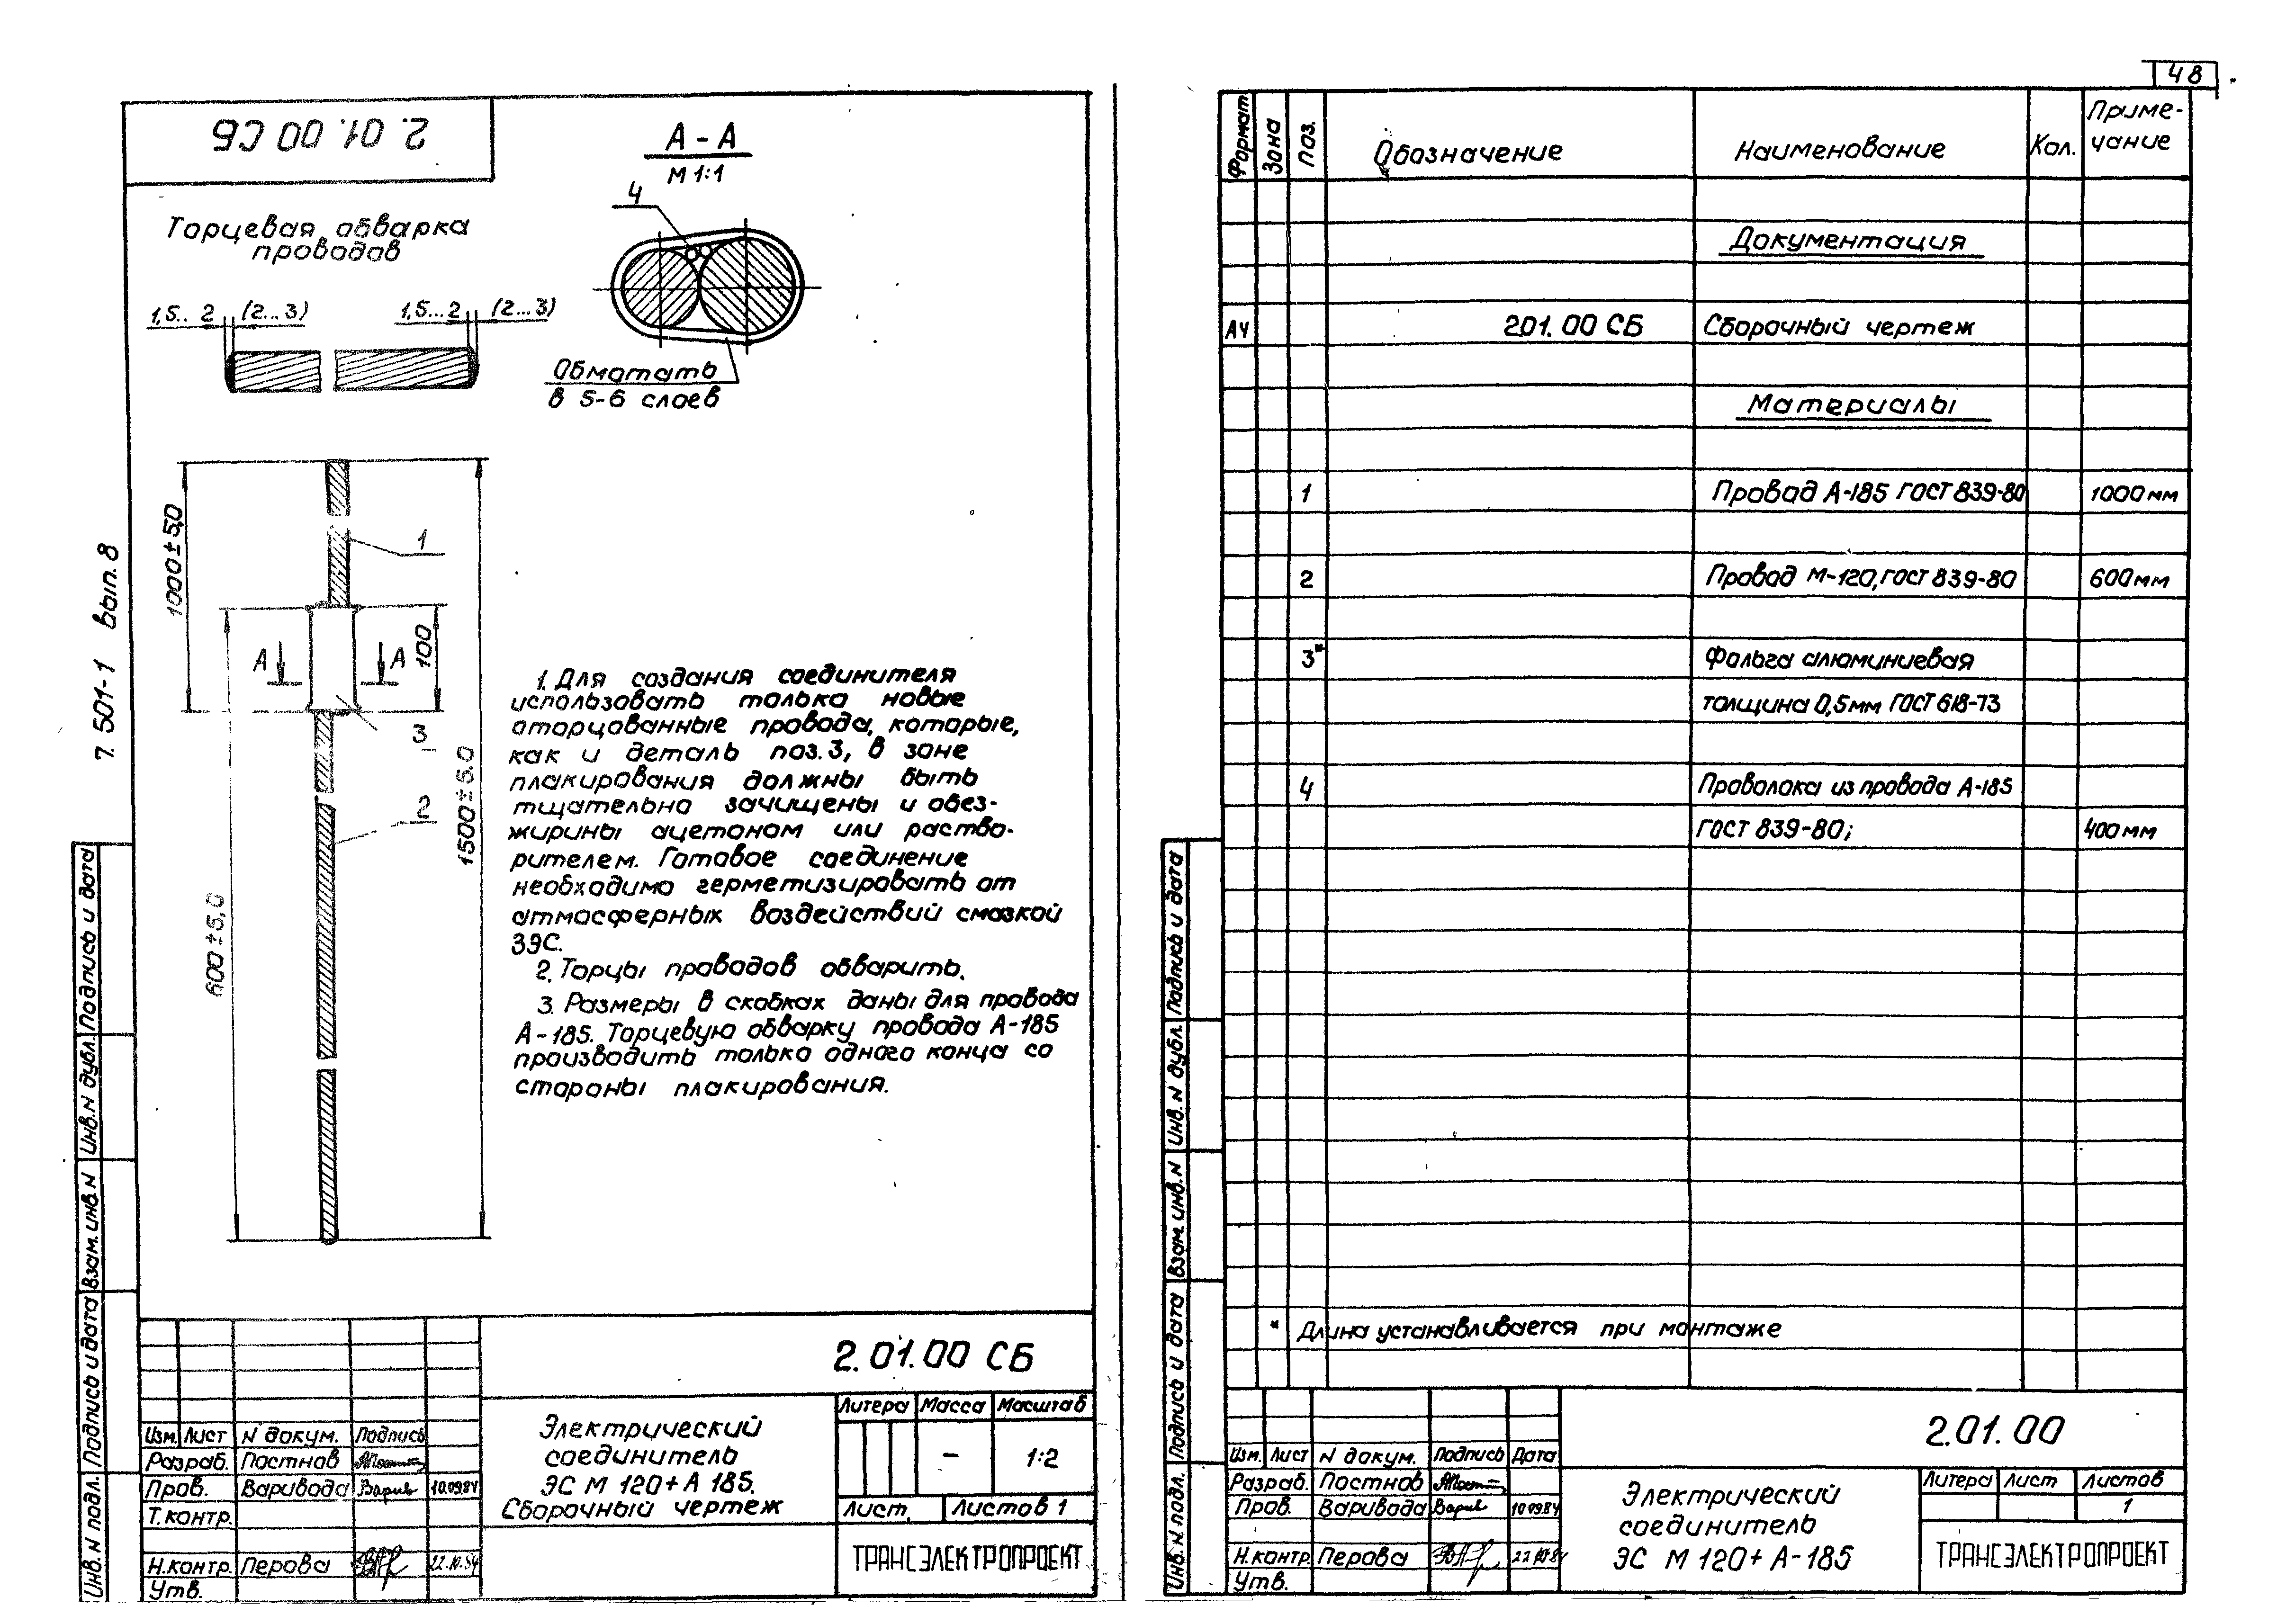 48
2.01.00 СБ
А-А
М 1:1
4
Торцевая обварка
проводов
1,5..2 (2...3)
1,5...2 (2...3)
Обмотать
в 5-6 слоев
7.501-1 вып. 8
1000±5,0
1
600±5,0
А А
100
3
2
1500±5.0
1. Для создания соединителя
использовать только новые
оторцованные провода, которые,
как и деталь поз.3, в зоне
плакирования должны быть
тщательно зачищены и обез-
жирины ацетоном или раство-
рителем. Готовое соединение
необходимо герметизировать от
атмосферных воздействий смазкой
ЗЭС.
2. Торцы проводов обварить.
3. Размеры в скобках даны для провода
А-185. Торцевую обварку провода А-185
производить только одного конца со
стороны плакирования.
Инв. N подл. Подпись и дата Взам. инв. N Инв. N дубл. Подпись и дата
2.01.00 СБ
Изм. Лист N докум. Подпись
Разраб. Постнов
Пров. Варивода 10.09.84
Т.контр.
Н.контр. Перова 22.10.84
Утв.
Электрический
соединитель
ЭС М 120+А 185.
Сборочный чертеж
Литера Масса Масштаб
— 1:2
Лист. Листов 1
ТРАНСЭЛЕКТРОПРОЕКТ
Формат Зона Поз. Обозначение Наименование Кол. Приме-
чание
Документация
А4 2.01.00 СБ Сборочный чертеж
Материалы
1 Провод А-185 ГОСТ 839-80 1000 мм
2 Провод М-120, ГОСТ 839-80 600 мм
3* Фольга алюминиевая
толщина 0,5мм ГОСТ 618-73
4 Проволока из провода А-185
ГОСТ 839-80; 400 мм
* Длина устанавливается при монтаже
Инв. N подл. Подпись и дата Взам. инв. N Инв. N дубл. Подпись и дата
2.01.00
Изм. Лист N докум. Подпись Дата
Разраб. Постнов
Пров. Варивода 10.09.84
Н.контр. Перова 22.10.84
Утв.
Электрический
соединитель
ЭС М 120+ А-185
Литера Лист Листов
1
ТРАНСЭЛЕКТРОПРОЕКТ